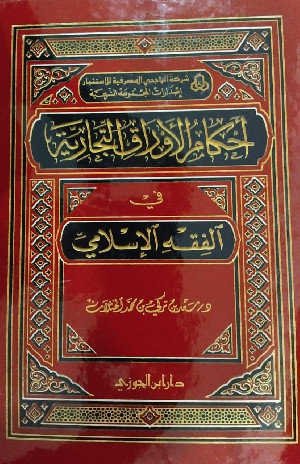 شركة الراجحي المصرفية للاستثمار
إصدارات المجموعة الشرعية
أحكام الأوراق التجارية
في
الفقه الإسلامي
د. سعد بن تركي بن محمد الخثلان
دار ابن الجوزي